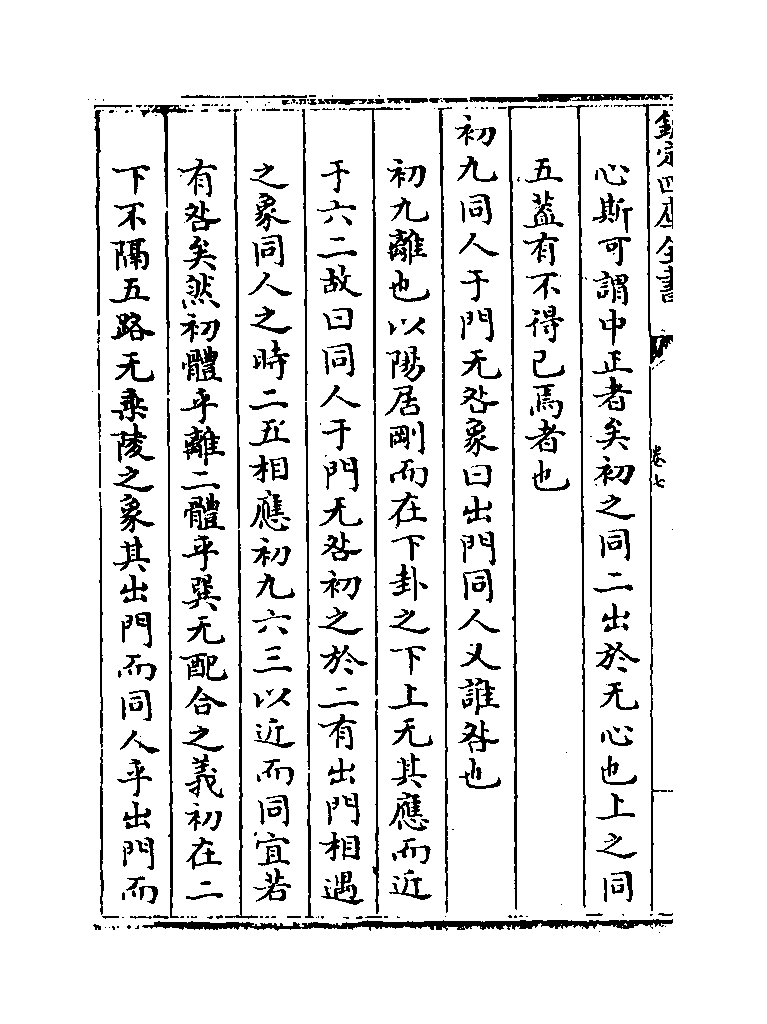 欽定四庫全書
卷七
心斯可謂中正者矣初之同二出於无心也上之同
五葢有不得已焉者也
初九同人于門无咎象曰出門同人又誰咎也
初九離也以陽居剛而在下卦之下上无其應而近
于六二故曰同人于門无咎初之於二有出門相遇
之象同人之時二五相應初九六三以近而同宜若
有咎矣然初體乎離二體乎巽无配合之義初在二
下不隔五路无乘陵之象其出門而同人乎出門而